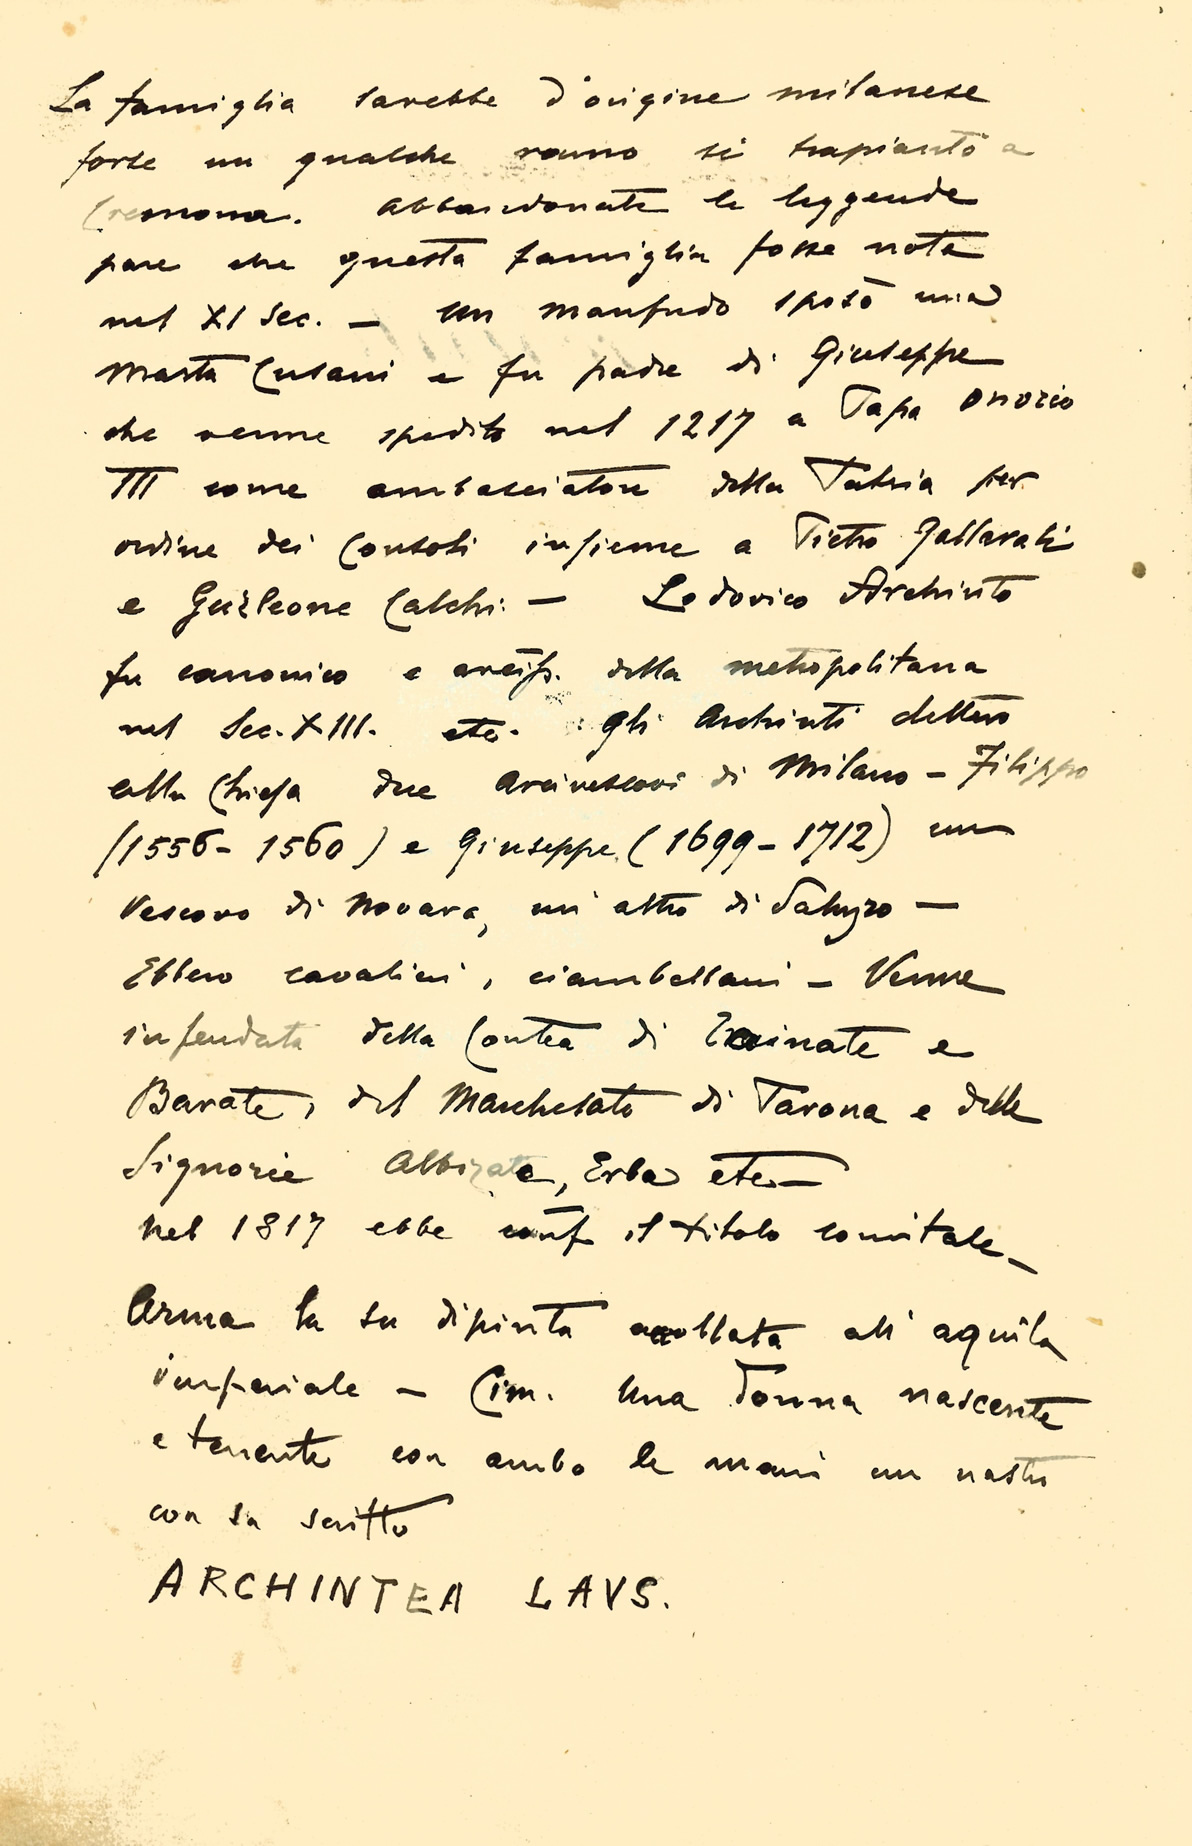 La famiglia sarebbe d'origine milanese
forse un qualche ramo si trapiantò a
Cremona. Abbandonate le leggende
pare che questa famiglia fosse nota
nel XI Sec. — Un Manfredo sposò una
Marta Cusani e fu padre di Giuseppe
che venne spedito nel 1217 a Papa Onorio
III come ambasciatore della Patria per
ordine dei Consoli insieme a Pietro Fallavali
e Guzleone Calchi. — Lodovico Archinto
fu canonico e arcip. della metropolitana
nel Sec. XIII. etc. gli Archinti dettero
alla Chiesa due Arcivescovi di Milano — Filippo
(1556 - 1560) e Giuseppe (1699 - 1712) un
Vescovo di Novara, un altro di Saluzzo —
Ebbero cavalieri, ciambellani — Venne
infeudata della Contea di Trainate e
Barate, del Marchesato di Parona e delle
Signorie Albizate, Erba etc —
Nel 1817 ebbe conf il titolo comitale —
Arma la su dipinta accollata all' aquila
imperiale — Cim. Una donna nascente
e tenente con ambo le mani un nastro
con su scritto
ARCHINTEA LAVS.